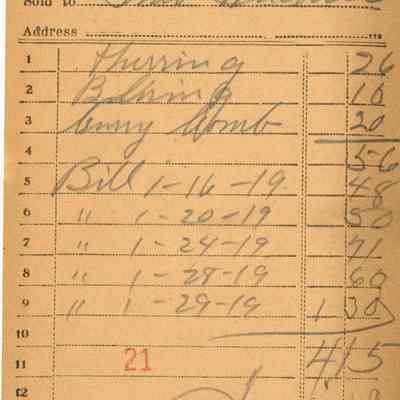 Sold to
Address
1 Herring 26
2 Bluing 10
3 Curry Comb 20
4 56
5 Bill 1-16-19. 48
6 " 1-20-19 50
7 " 1-24-19 71
8 " 1-28-19 60
9 " 1-29-19 1 30
10
11 21 4 15
12